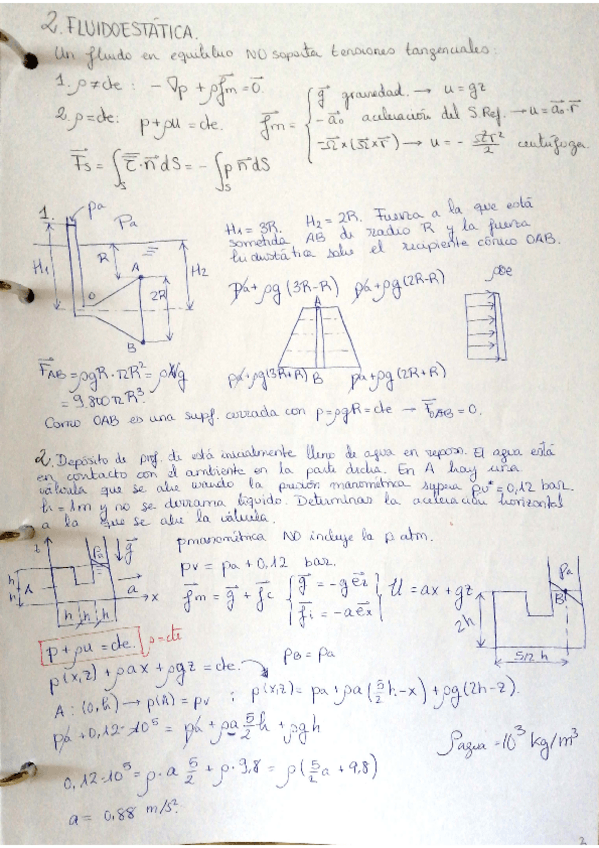 2. FLUIDOESTÁTICA.
Un fluido en equilibrio NO soporta tensiones tangenciales:
1. ρ≠cte : -∇p + ρf⃗m = 0⃗.
2. ρ=cte: p+ρu = cte. f⃗m = { g⃗ gravedad. → u = gz
-a⃗o aceleración del S.Ref. → u = a⃗o·r⃗
-Ω⃗×(Ω⃗×r⃗) → u = - Ω²r²/2 centrífuga
F⃗s = ∫s τ̿·n⃗dS = - ∫s p n⃗dS
1.
pa
Pa
H1
R
A
H2
O
2R
B
H1 = 3R. H2 = 2R. Fuerza a la que está
sometida AB de radio R y la fuerza
hidrostática sobre el recipiente cónico OAB.
pa+ρg(3R-R) pa+ρg(2R-R)
A
B
pa+ρg(3R+R) pa+ρg(2R+R)
F⃗AB = ρgR·πR² = ρVg
= 9.800πR³.
Como OAB es una supf. cerrada con p=ρgR=cte → F⃗OAB = 0.
2. Depósito de prof. d está inicialmente lleno de agua en reposo. El agua está
en contacto con el ambiente en la parte dcha. En A hay una
válvula que se abre cuando la presión manométrica supera pv* = 0,12 bar.
h = 1m y no se derrama líquido. Determinar la aceleración horizontal
a la que se abre la válvula.
z
Pa
g⃗
h
A
h
a
x
h h h
pmanométrica NO incluye la p atm.
pv = pa + 0,12 bar.
f⃗m = g⃗ + f⃗c { g⃗ = -g e⃗z
f⃗i = -a e⃗x } U = ax + gz
Pa
B
2h
5/2 h
p + ρu = cte. ρ=cte
pB = pa
p(x,z) + ρax + ρgz = cte.
A: (0,h) → p(h) = pv ; p(x,z) = pa + ρa(5/2 h - x) + ρg(2h-z).
pa + 0,12·10⁵ = pa + ρa 5/2 h + ρgh
ρagua = 10³ kg/m³
0,12·10⁵ = ρ·a 5/2 + ρ·9,8 = ρ(5/2 a + 9,8)
a = 0,88 m/s².